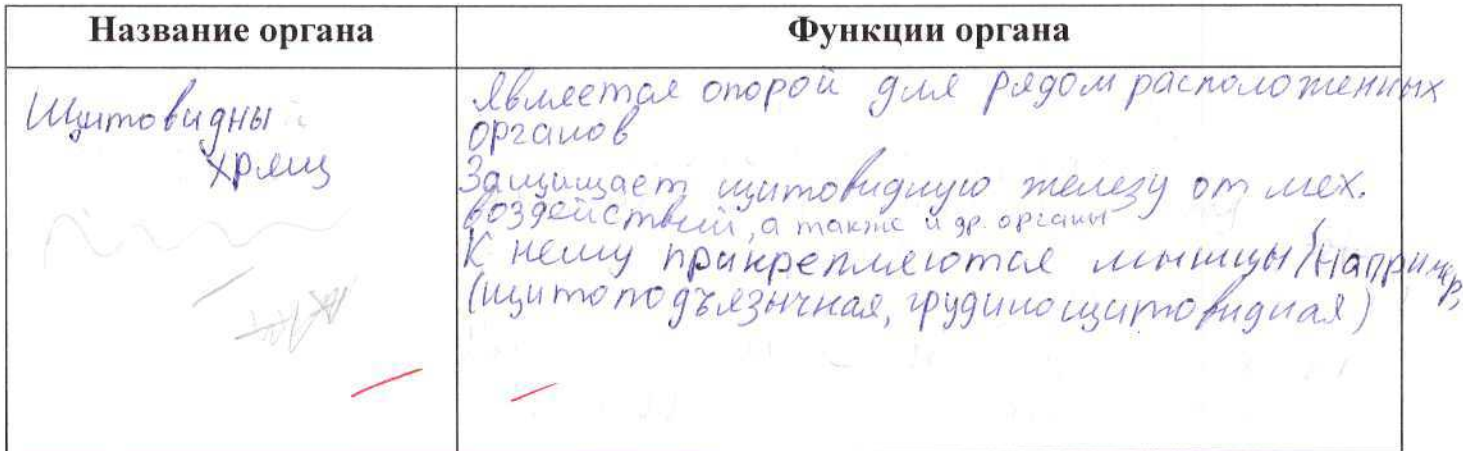 Название органа
Функции органа
Щитовидны
хрящ
Является опорой для рядом расположенных
органов
Защищает щитовидную железу от мех.
воздействий, а также и др. органы
К нему прикрепляются мышцы (например,
(щитоподъязычная, грудинощитовидная)